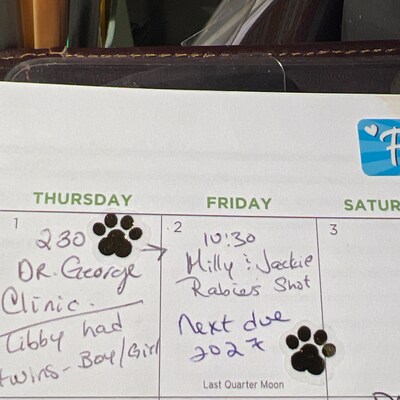 THURSDAY
FRIDAY
SATUR
1
230
DR. George
Clinic.
Libby had
twins - Boy/Girl
2
10:30
Milly & Jackie
Rabies Shot
Next due
2027
Last Quarter Moon
3